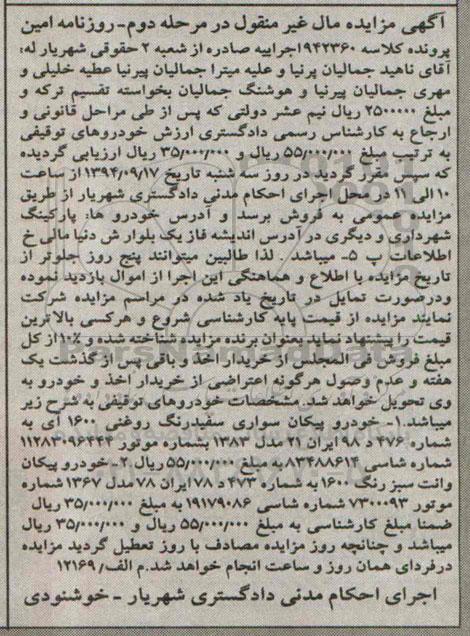 آگهی مزایده مال غیر منقول در مرحله دوم-روزنامه امین
پرونده کلاسه ۹۴۲۳۶۰اجراییه صادره از شعبه ۲ حقوقی شهریار له:
آقای ناهید جمالیان پرنیا و علیه میترا جمالیان پیرنیا عطیه خلیلی و
مهری جمالیان پیرنیا و هوشنگ جمالیان بخواسته تقسیم ترکه و
مبلغ ۲۵۰۰۰۰۰ ریال نیم عشر دولتی که پس از طی مراحل قانونی و
ارجاع به کارشناس رسمی دادگستری ارزش خودروهای توقیفی
به ترتیب مبلغ ۵۵/۰۰۰/۰۰۰ ریال و ۳۵/۰۰۰/۰۰۰ ریال ارزیابی گردیده
که سپس مقرر گردید در روز سه شنبه تاریخ ۱۳۹۴/۰۹/۱۷از ساعت
۱۰ الی ۱۱ در محل اجرای احکام مدنی دادگستری شهریار از طریق
مزایده عمومی به فروش برسد و آدرس خودرو ها: پارکینگ
شهرداری و دیگری در آدرس اندیشه فاز یک بلوار ش دنیا مالی خ
اطلاعات پ ۵- میباشد . لذا طالبین میتوانند پنج روز جلوتر از
تاریخ مزایده با اطلاع و هماهنگی این اجرا از اموال بازدید نموده
ودرصورت تمایل در تاریخ یاد شده در مراسم مزایده شرکت
نمایند مزایده از قیمت پایه کارشناسی شروع و هرکسی بالاترین
قیمت را پیشنهاد نماید بعنوان برنده مزایده شناخته شده و ۱۰٪ از کل
مبلغ فروش فی المجلس از خریدار اخذ و باقی پس از گذشت یک
هفته و عدم وصول هرگونه اعتراضی از خریدار اخذ و خودرو به
وی تحویل خواهد شد. مشخصات خودروهای توقیفی به شرح زیر
میباشد.۱- خودرو پیکان سواری سفیدرنگ روغنی ۱۶۰۰ آی به
شماره ۴۷۶ د ۹۸ ایران ۲۱ مدل ۱۳۸۳ بشماره موتور ۱۱۲۸۳۰۹۶۴۴۴
شماره شاسی ۸۳۴۸۸۶۱۴ به مبلغ ۵۵/۰۰۰/۰۰۰ ریال ۲-خودرو پیکان
وانت سبز رنگ ۱۶۰۰ به شماره ۴۷۳ د ۷۸ ایران ۷۸ مدل ۱۳۶۷ شماره
موتور ۷۳۰۰۹۳ شماره شاسی ۱۹۱۷۹۰۸۶ به مبلغ ۳۵/۰۰۰/۰۰۰ ریال
ضمنا مبلغ کارشناسی به مبلغ ۵۵/۰۰۰/۰۰۰ ریال و ۳۵/۰۰۰/۰۰۰ ریال
میباشد و چنانچه روز مزایده مصادف با روز تعطیل گردید مزایده
درفردای همان روز و ساعت انجام خواهد شد.م الف/ ۱۲۱۶۹
اجرای احکام مدنی دادگستری شهریار - خوشنودی